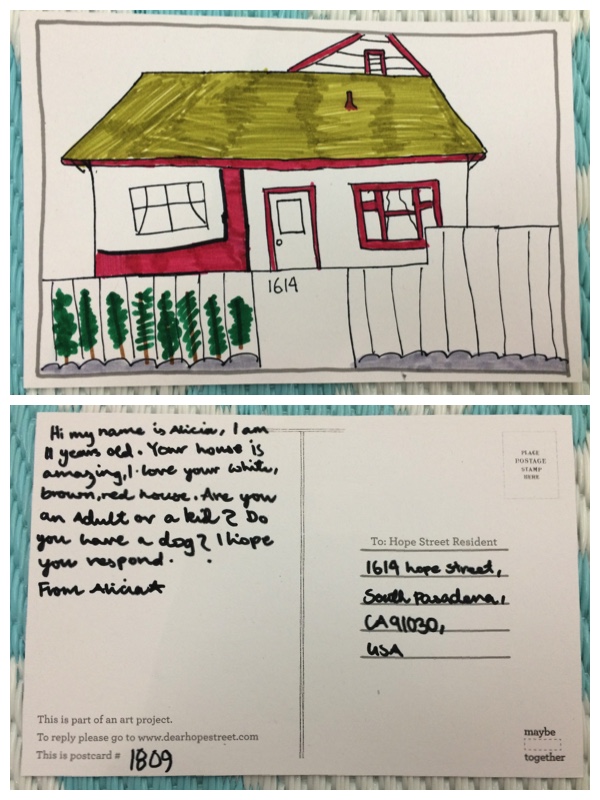 1614
Hi my name is Alicia, I am
11 years old. Your house is
amazing, I love your white,
brown, red house. Are you
an Adult or a kid? Do
you have a dog? I hope
you respond.
From Alicia
PLACE
POSTAGE
STAMP
HERE
To: Hope Street Resident
1614 hope street,
South Pasadena,
CA 91030,
USA
This is part of an art project.
To reply please go to www.dearhopestreet.com
This is postcard # 1809
maybe
together